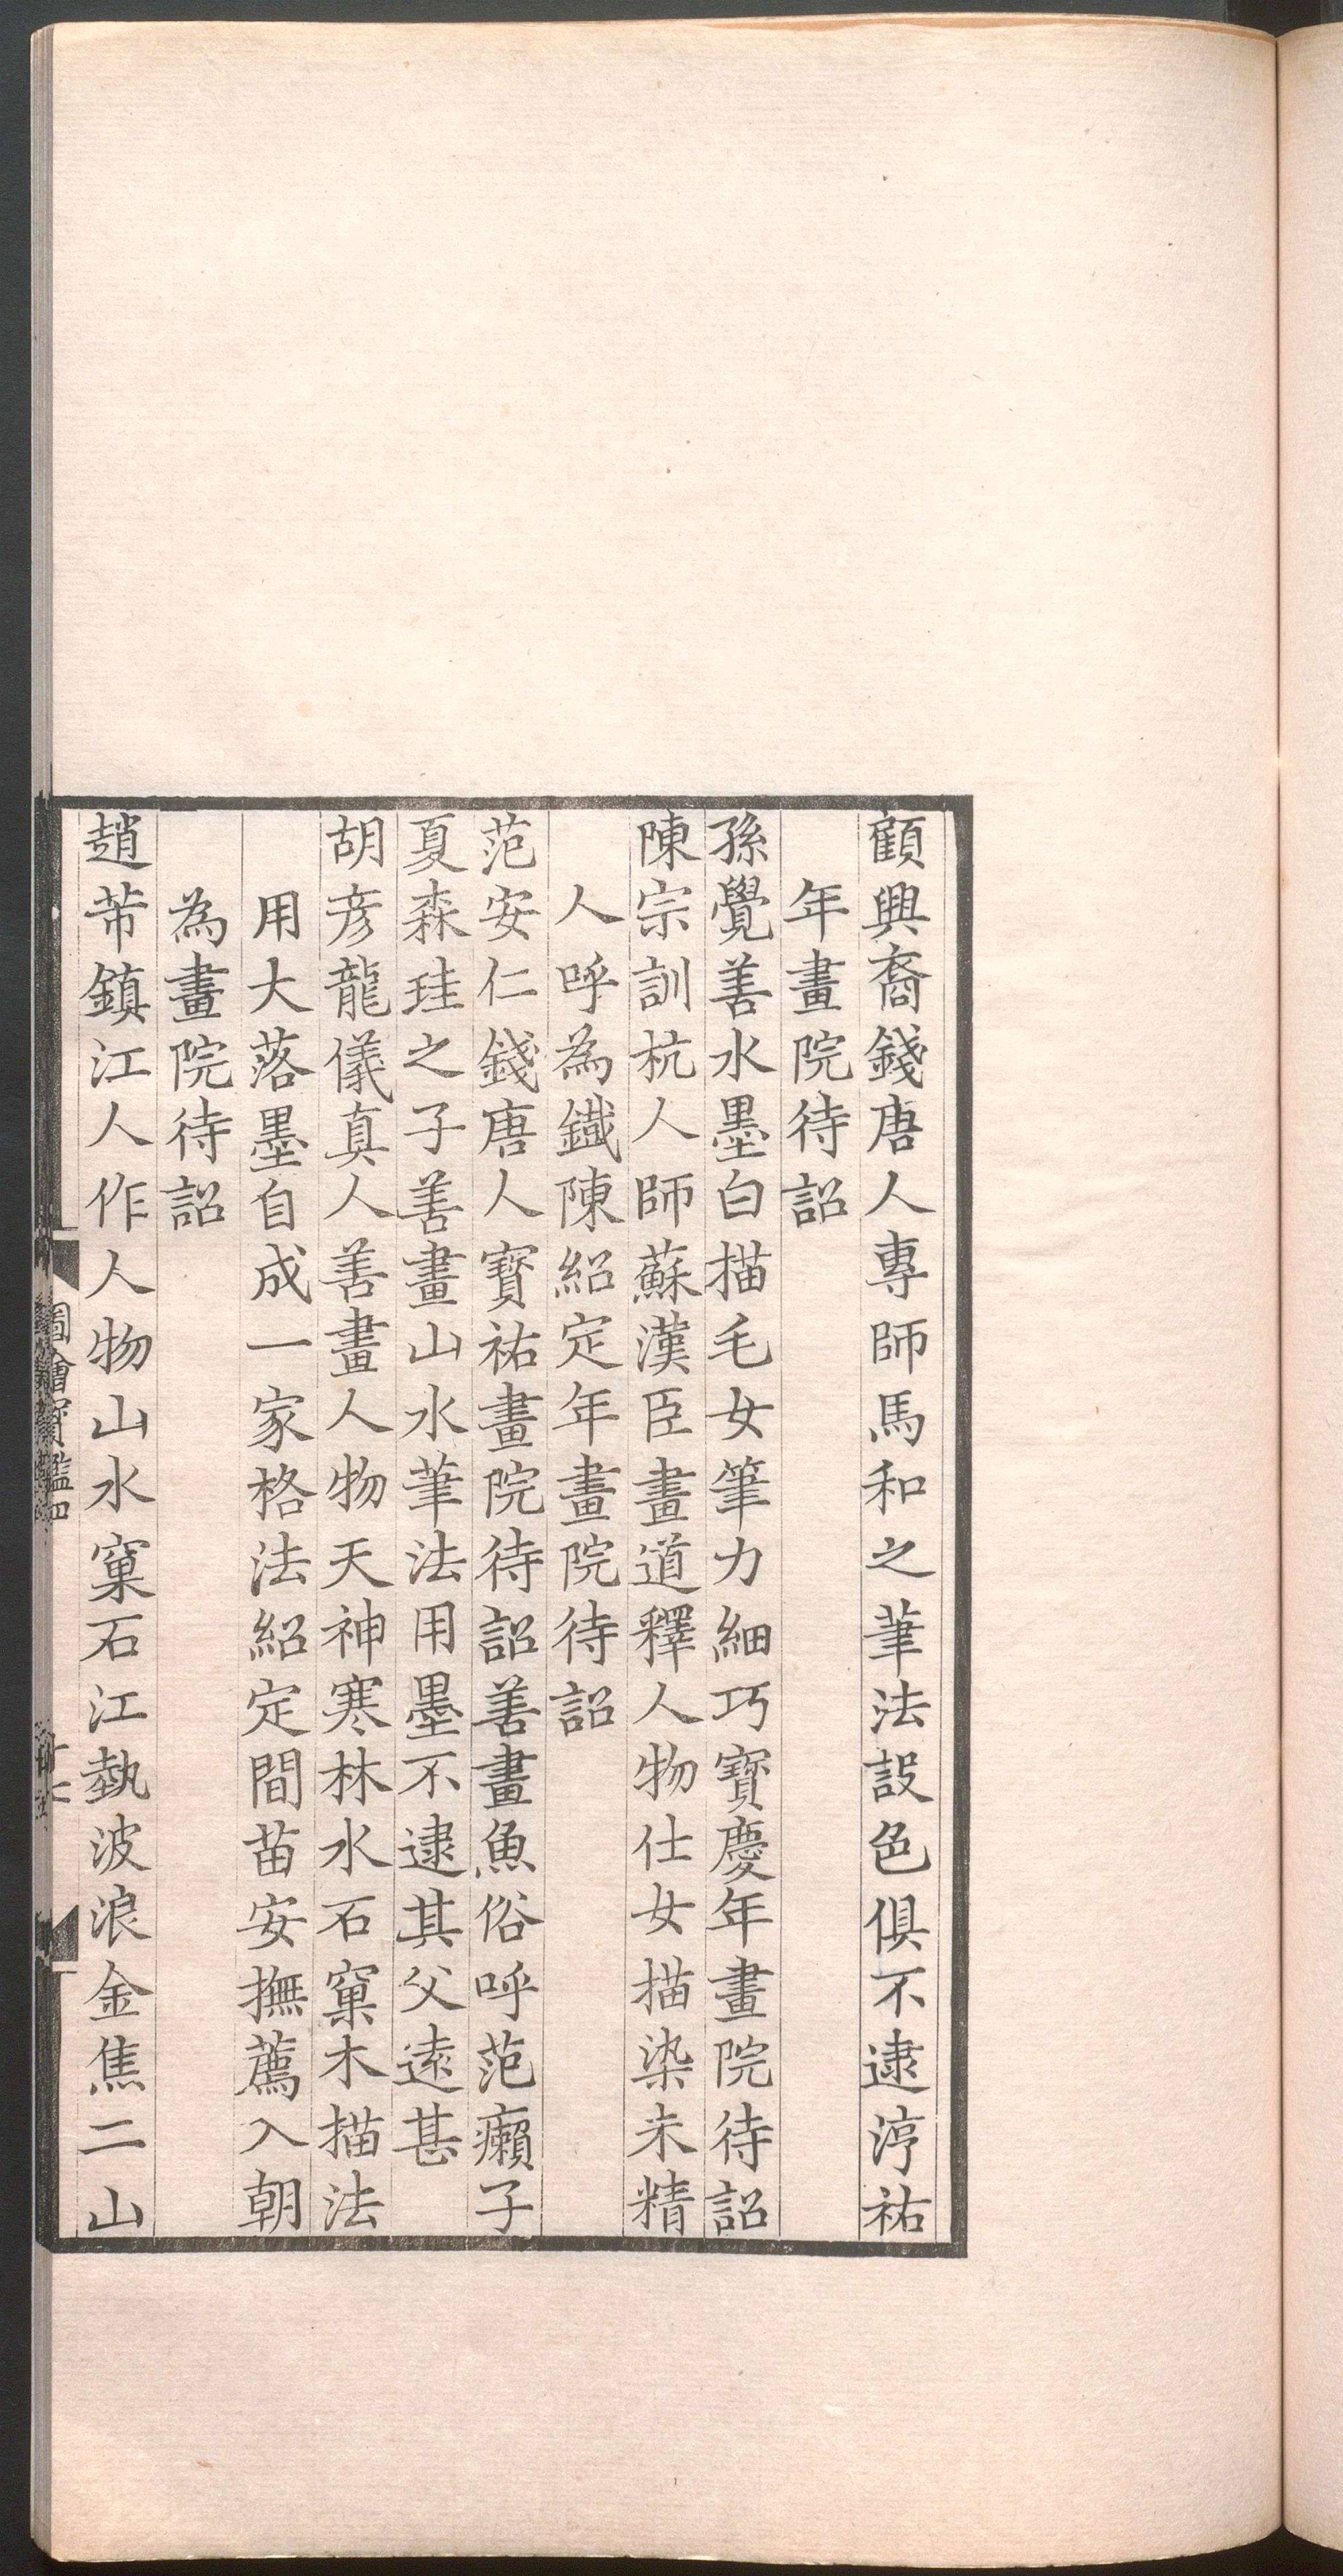 顧興裔錢唐人專師馬和之筆法設色俱不逮淳祐
年畫院待詔
孫覺善水墨白描毛女筆力細巧寳慶年畫院待詔
陳宗訓杭人師蘇漢臣畫道釋人物仕女描染未精
人呼為鐵陳紹定年畫院待詔
范安仁錢唐人寳祐畫院待詔善畫魚俗呼范癩子
夏森珪之子善畫山水筆法用墨不逮其父遠甚
胡彦龍儀真人善畫人物天神寒林水石窠木描法
用大落墨自成一家格法紹定間苗安撫薦入朝
為畫院待詔
趙芾鎮江人作人物山水窠石江埶波浪金焦二山
圖繪寳鑑四